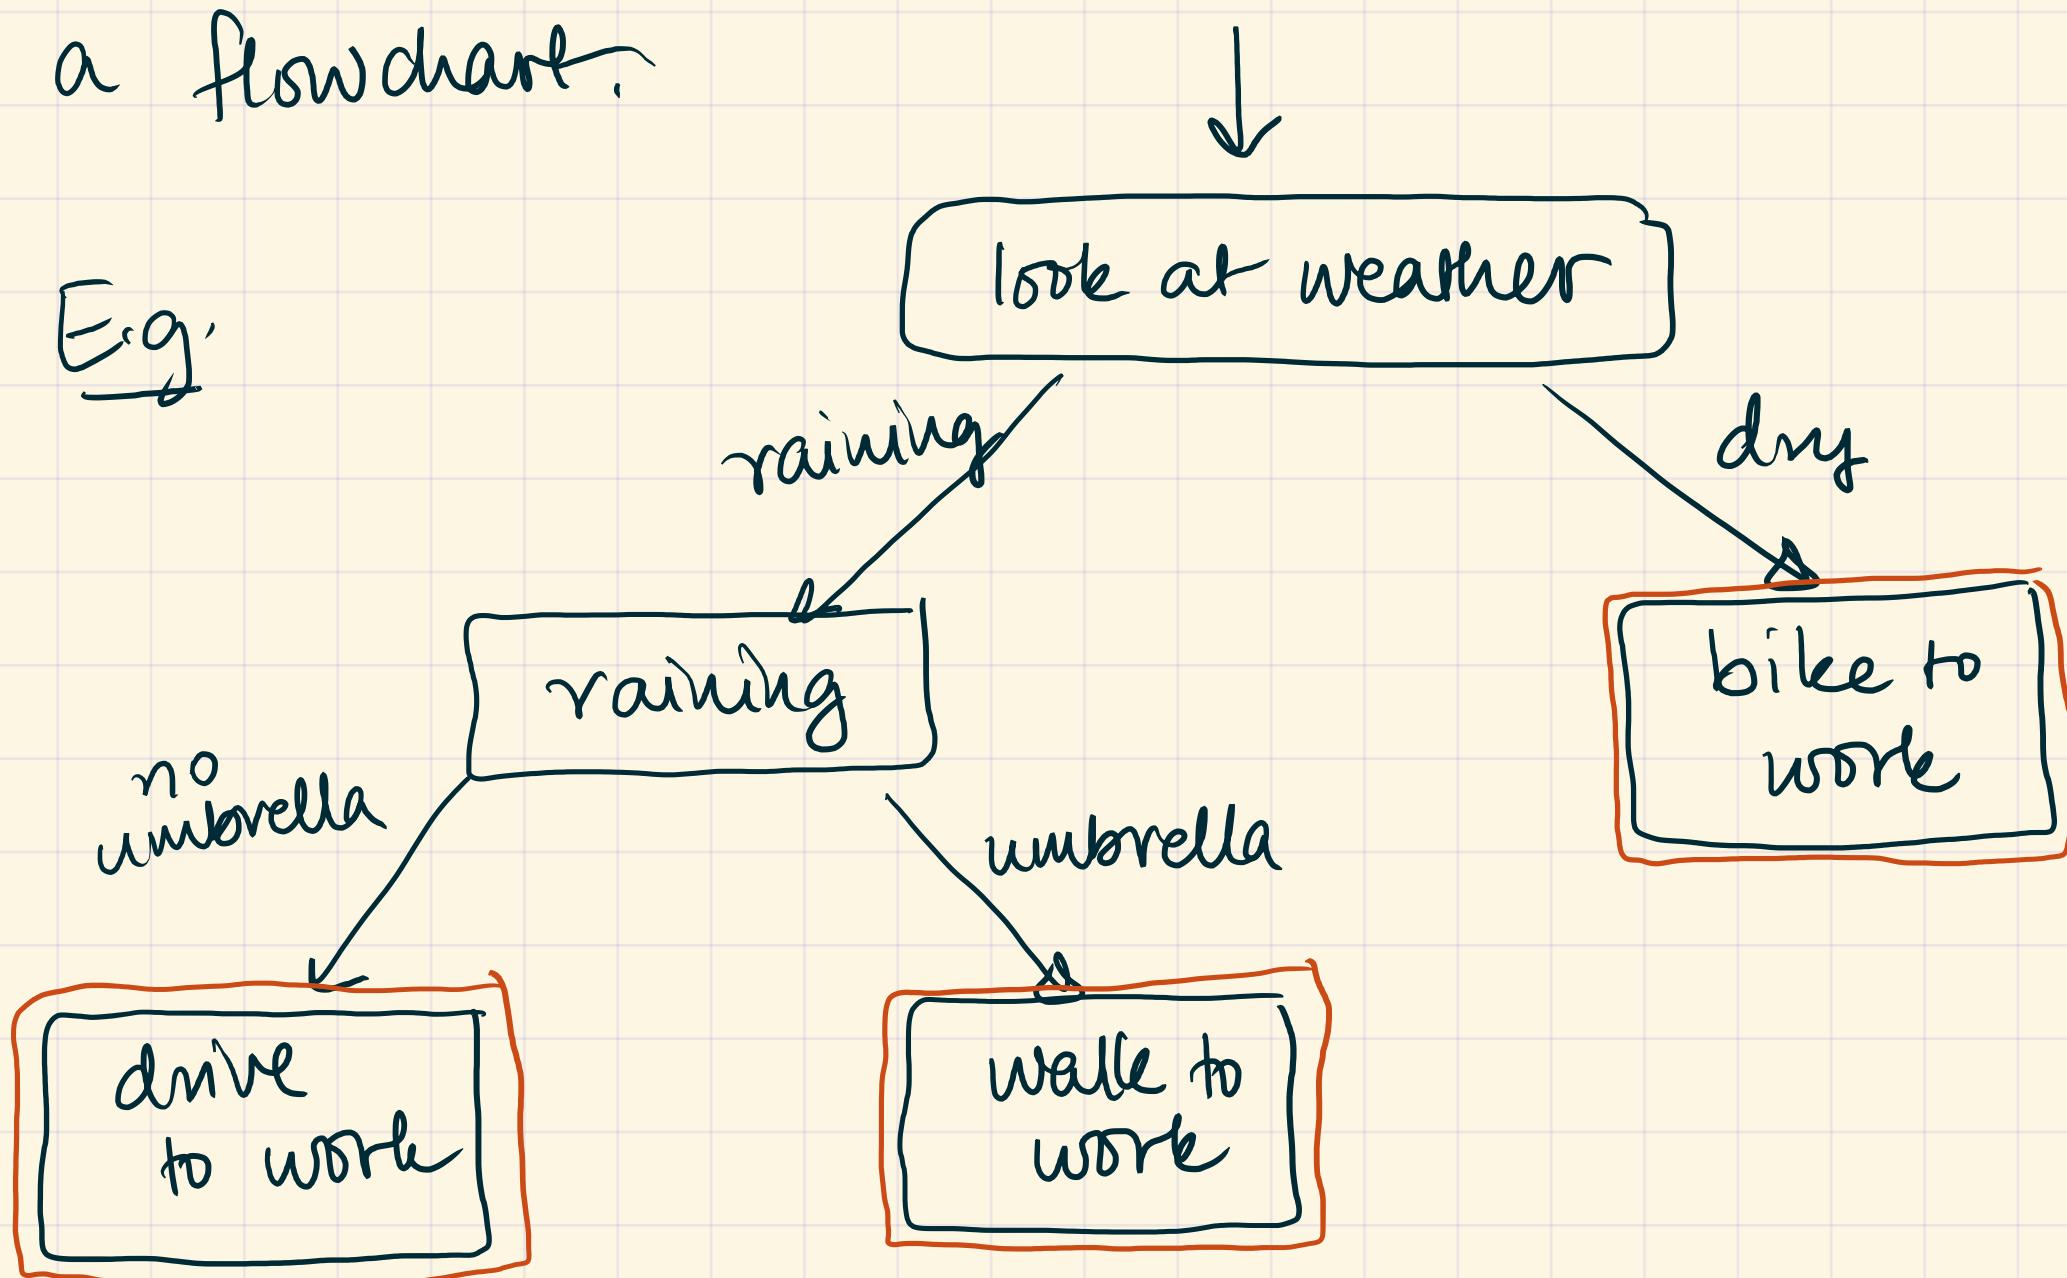 a flowchart.
look at weather
E.g.
raining
dry
raining
bike to
work
no
umbrella
umbrella
drive
to work
walk to
work